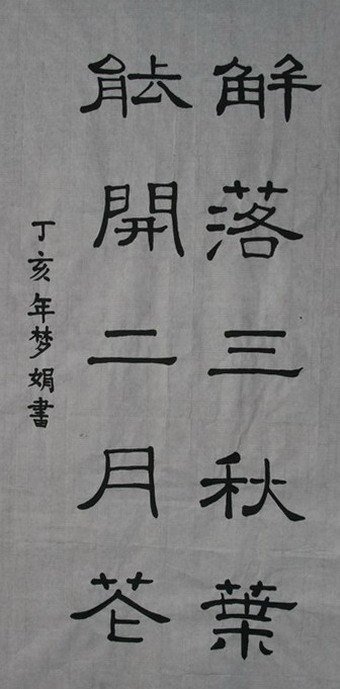 解落三秋葉
能開二月花
丁亥年梦娟書